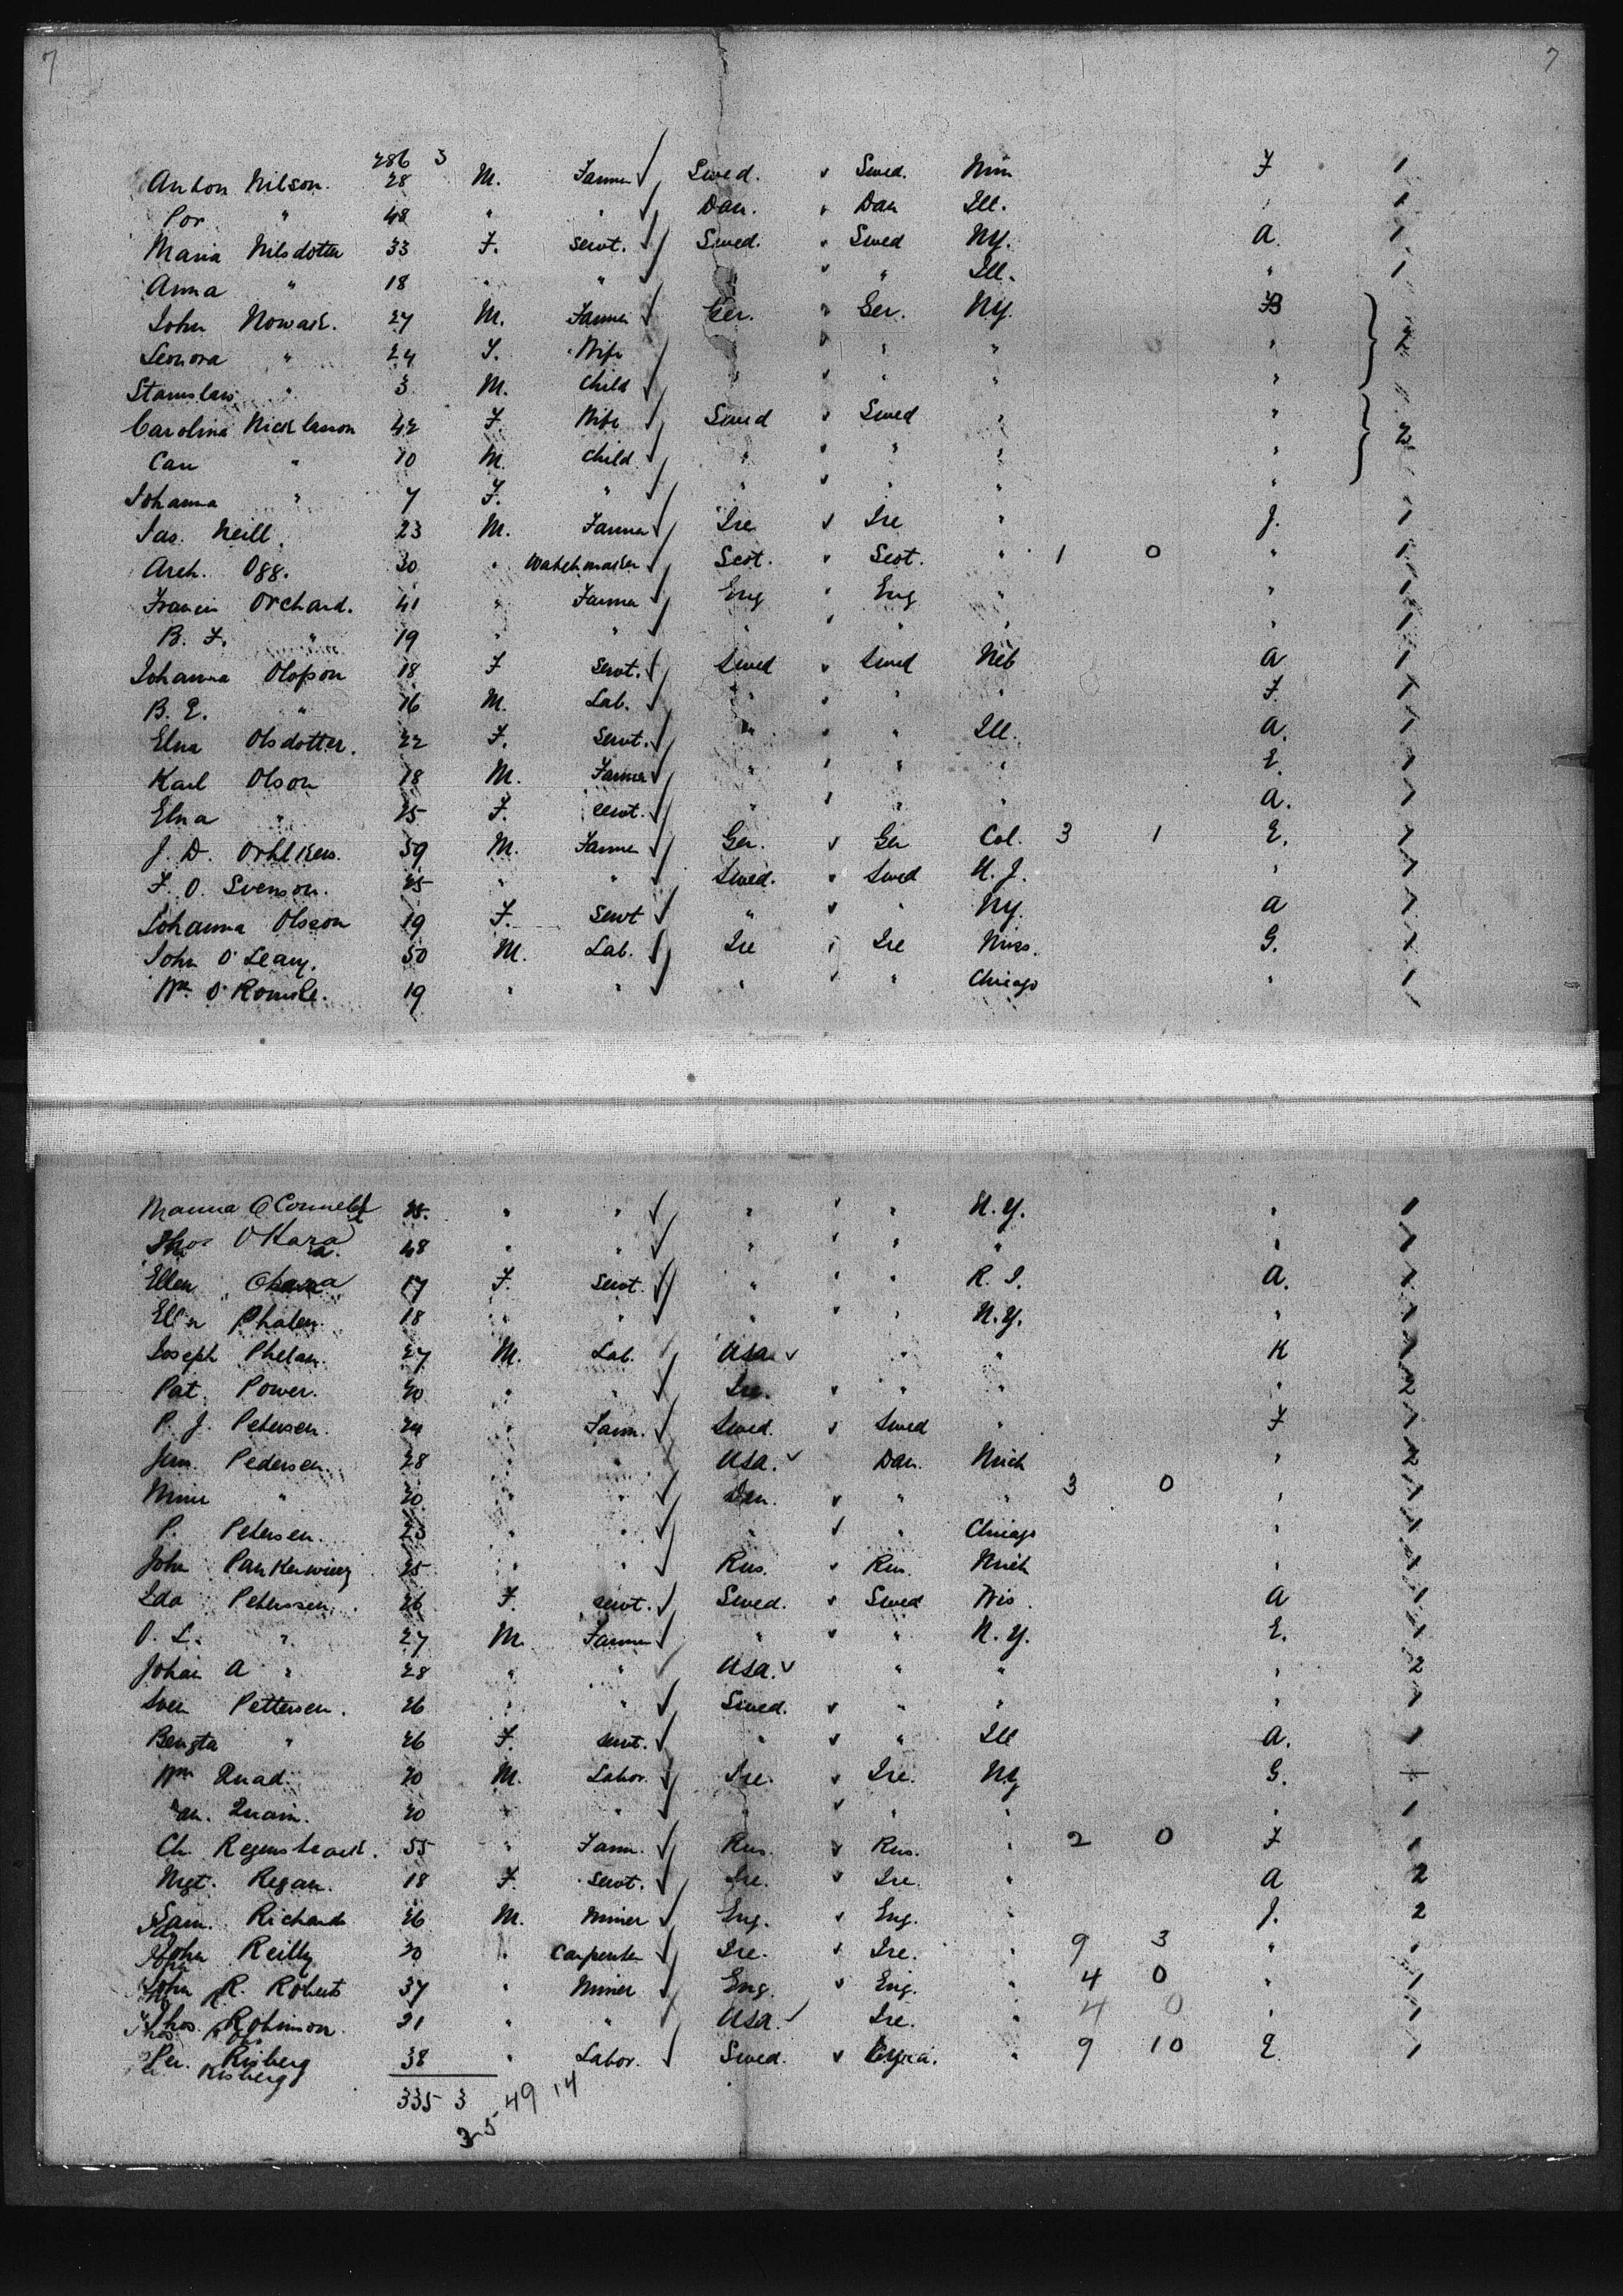 7 7
286 3
Anton Nilson. 28 M. Farmer Swed. Swed. Min F 1
Por " 48 " " Dan. " Dan Ill. " 1
Maria Nilsdotter 33 F. Servt. Swed. " Swed NY. A. 1
Anna " 18 " " " " " Ill. " 1
John Nowack. 27 M. Farmer Ger. " Ger. NY. B
Leonora " 24 F. Wife " " " " " 2
Stanislaw " 3 M. Child " " " "
Carolina Nicklasson 42 F. Wife Swed Swed " "
Carl " 10 M. Child " " " " " 2
Johanna " 7 F. " " " " "
Jas. Neill. 23 M. Farmer Ire Ire " J. 1
Arch. Ogg. 30 " Watchmaker Scot. " Scot. " 1 0 " 1
Francis Orchard. 41 " Farmer Eng " Eng " " 1
B. F. " 19 " " " " " " 1
Johanna Olofson 18 F Servt. Swed Swed Neb A 1
B. E. " 16 M. Lab. " " " F. 1
Elna Olsdotter. 22 F. Servt. " " " Ill. A. 1
Karl Olson 18 M. Farmer " " " " E. 1
Elna " 25 F. Servt. " " " A. 1
J. D. Ohlkers. 59 M. Farmer Ger. Ger Col. 3 1 E. 1
F. O. Svenson. 25 " " Swed. " Swed N. J. " 1
Johanna Olsson 19 F. Servt " " NY. A 1
John O'Leary. 50 M. Lab. Ire " Ire Miss. G. 1
Wm. O'Rourke. 19 " " " " Chicago " 1
O'Connell 25. " " " " N. Y. " 1
Thos O'Hara 48 " " " " " " " 1
Ellen Ohara 17 F. Servt. " " " R. I. A. 1
Ellen Phalen. 18 " " " " N. Y. " 1
Joseph Phelan. 27 M. Lab. USA " " K 1
Pat. Power. 20 " " Ire. " " " 2
P. J. Petersen. 24 " Farm. Swed. Swed " F 1
Jens. Pedersen 28 " " USA. Dan. Mich " 2
" 20 " " Dan. " " 3 0 " 1
P. Petersen. 23 " " " " Chicago " 1
John 25 " " Rus. Rus. Mich " 1
Ida Peterssen. 26 F. servt. Swed. Swed Wis. A 1
O. L. " 27 M. Farmer " " N. Y. E. 1
Johan A " 28 " " USA. " " " 2
Sven Pettersen. 26 " " Swed. " " " 1
Bengta " 26 F. servt. " " Ill A. 1
Wm Quad. 20 M. Labor. Ire. Ire. NY G. 1
Quain. 20 " " " " " " 1
Ch. 55 " Farm. Rus. Rus. " 2 0 F 1
Mgt. Regan. 18 F. Servt. Ire. Ire. " A 2
Sam. Richards 26 M. Miner Eng. Eng. " J. 2
John Reilly 30 " Carpenter Ire. Ire. " 9 3 " 1
John R. Roberts 37 " Miner Eng. Eng. " 4 0 " 1
Thos. Robinson. 21 " " USA. Ire. 4 0 " 1
Per. Risberg 38 " Labor. Swed. " 9 10 E 1
Risberg
335 3 49 14
35